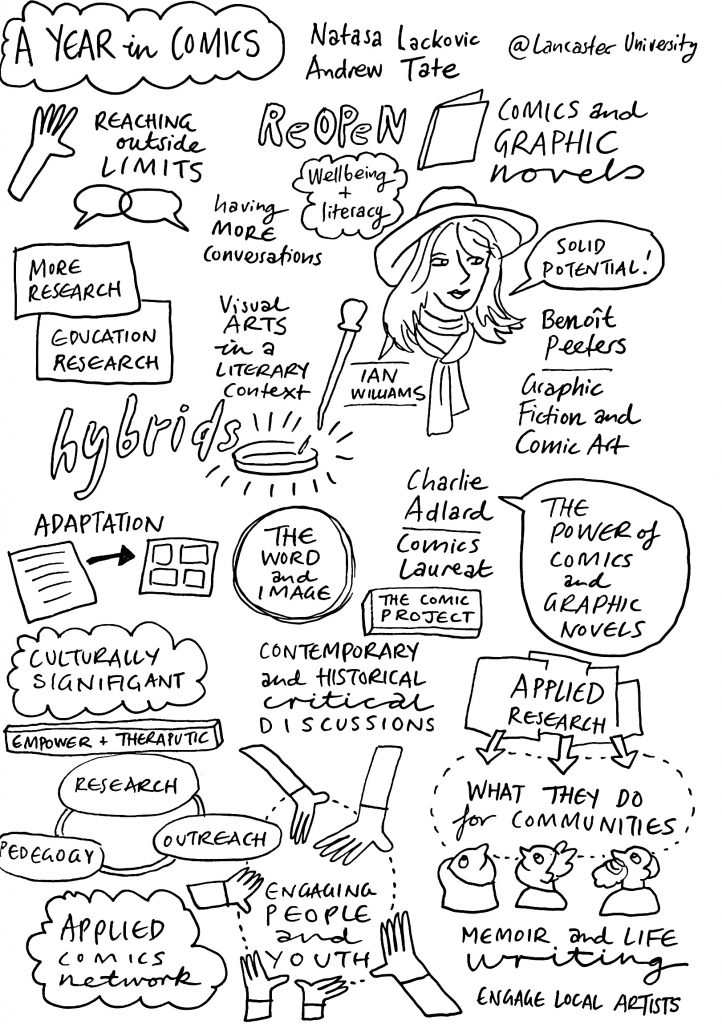 A YEAR in COMICS
Natasa Lackovic
Andrew Tate
@Lancaster University
REACHING
outside
LIMITS
REOPEN
COMICS and
GRAPHIC
novels
Wellbeing
+
literacy
having
MORE
Conversations
SOLID
POTENTIAL!
MORE
RESEARCH
EDUCATION
RESEARCH
Visual
ARTS
in a
LITERARY
Context
IAN
WILLIAMS
Benoît
Peeters
Graphic
Fiction and
Comic Art
hybrids
Charlie
Adlard
Comics
Laureat
THE
POWER of
COMICS
and
GRAPHIC
NOVELS
ADAPTATION
THE
WORD
and
IMAGE
THE COMIC
PROJECT
CULTURALLY
SIGNIFIGANT
CONTEMPORARY
and HISTORICAL
critical
DISCUSSIONS
APPLIED
RESEARCH
EMPOWER + THERAPUTIC
RESEARCH
PEDEGOGY
OUTREACH
WHAT THEY DO
for COMMUNITIES
ENGAGING
PEOPLE
and
YOUTH
APPLIED
COMICS
network
MEMOIR and LIFE
writing
ENGAGE LOCAL ARTISTS